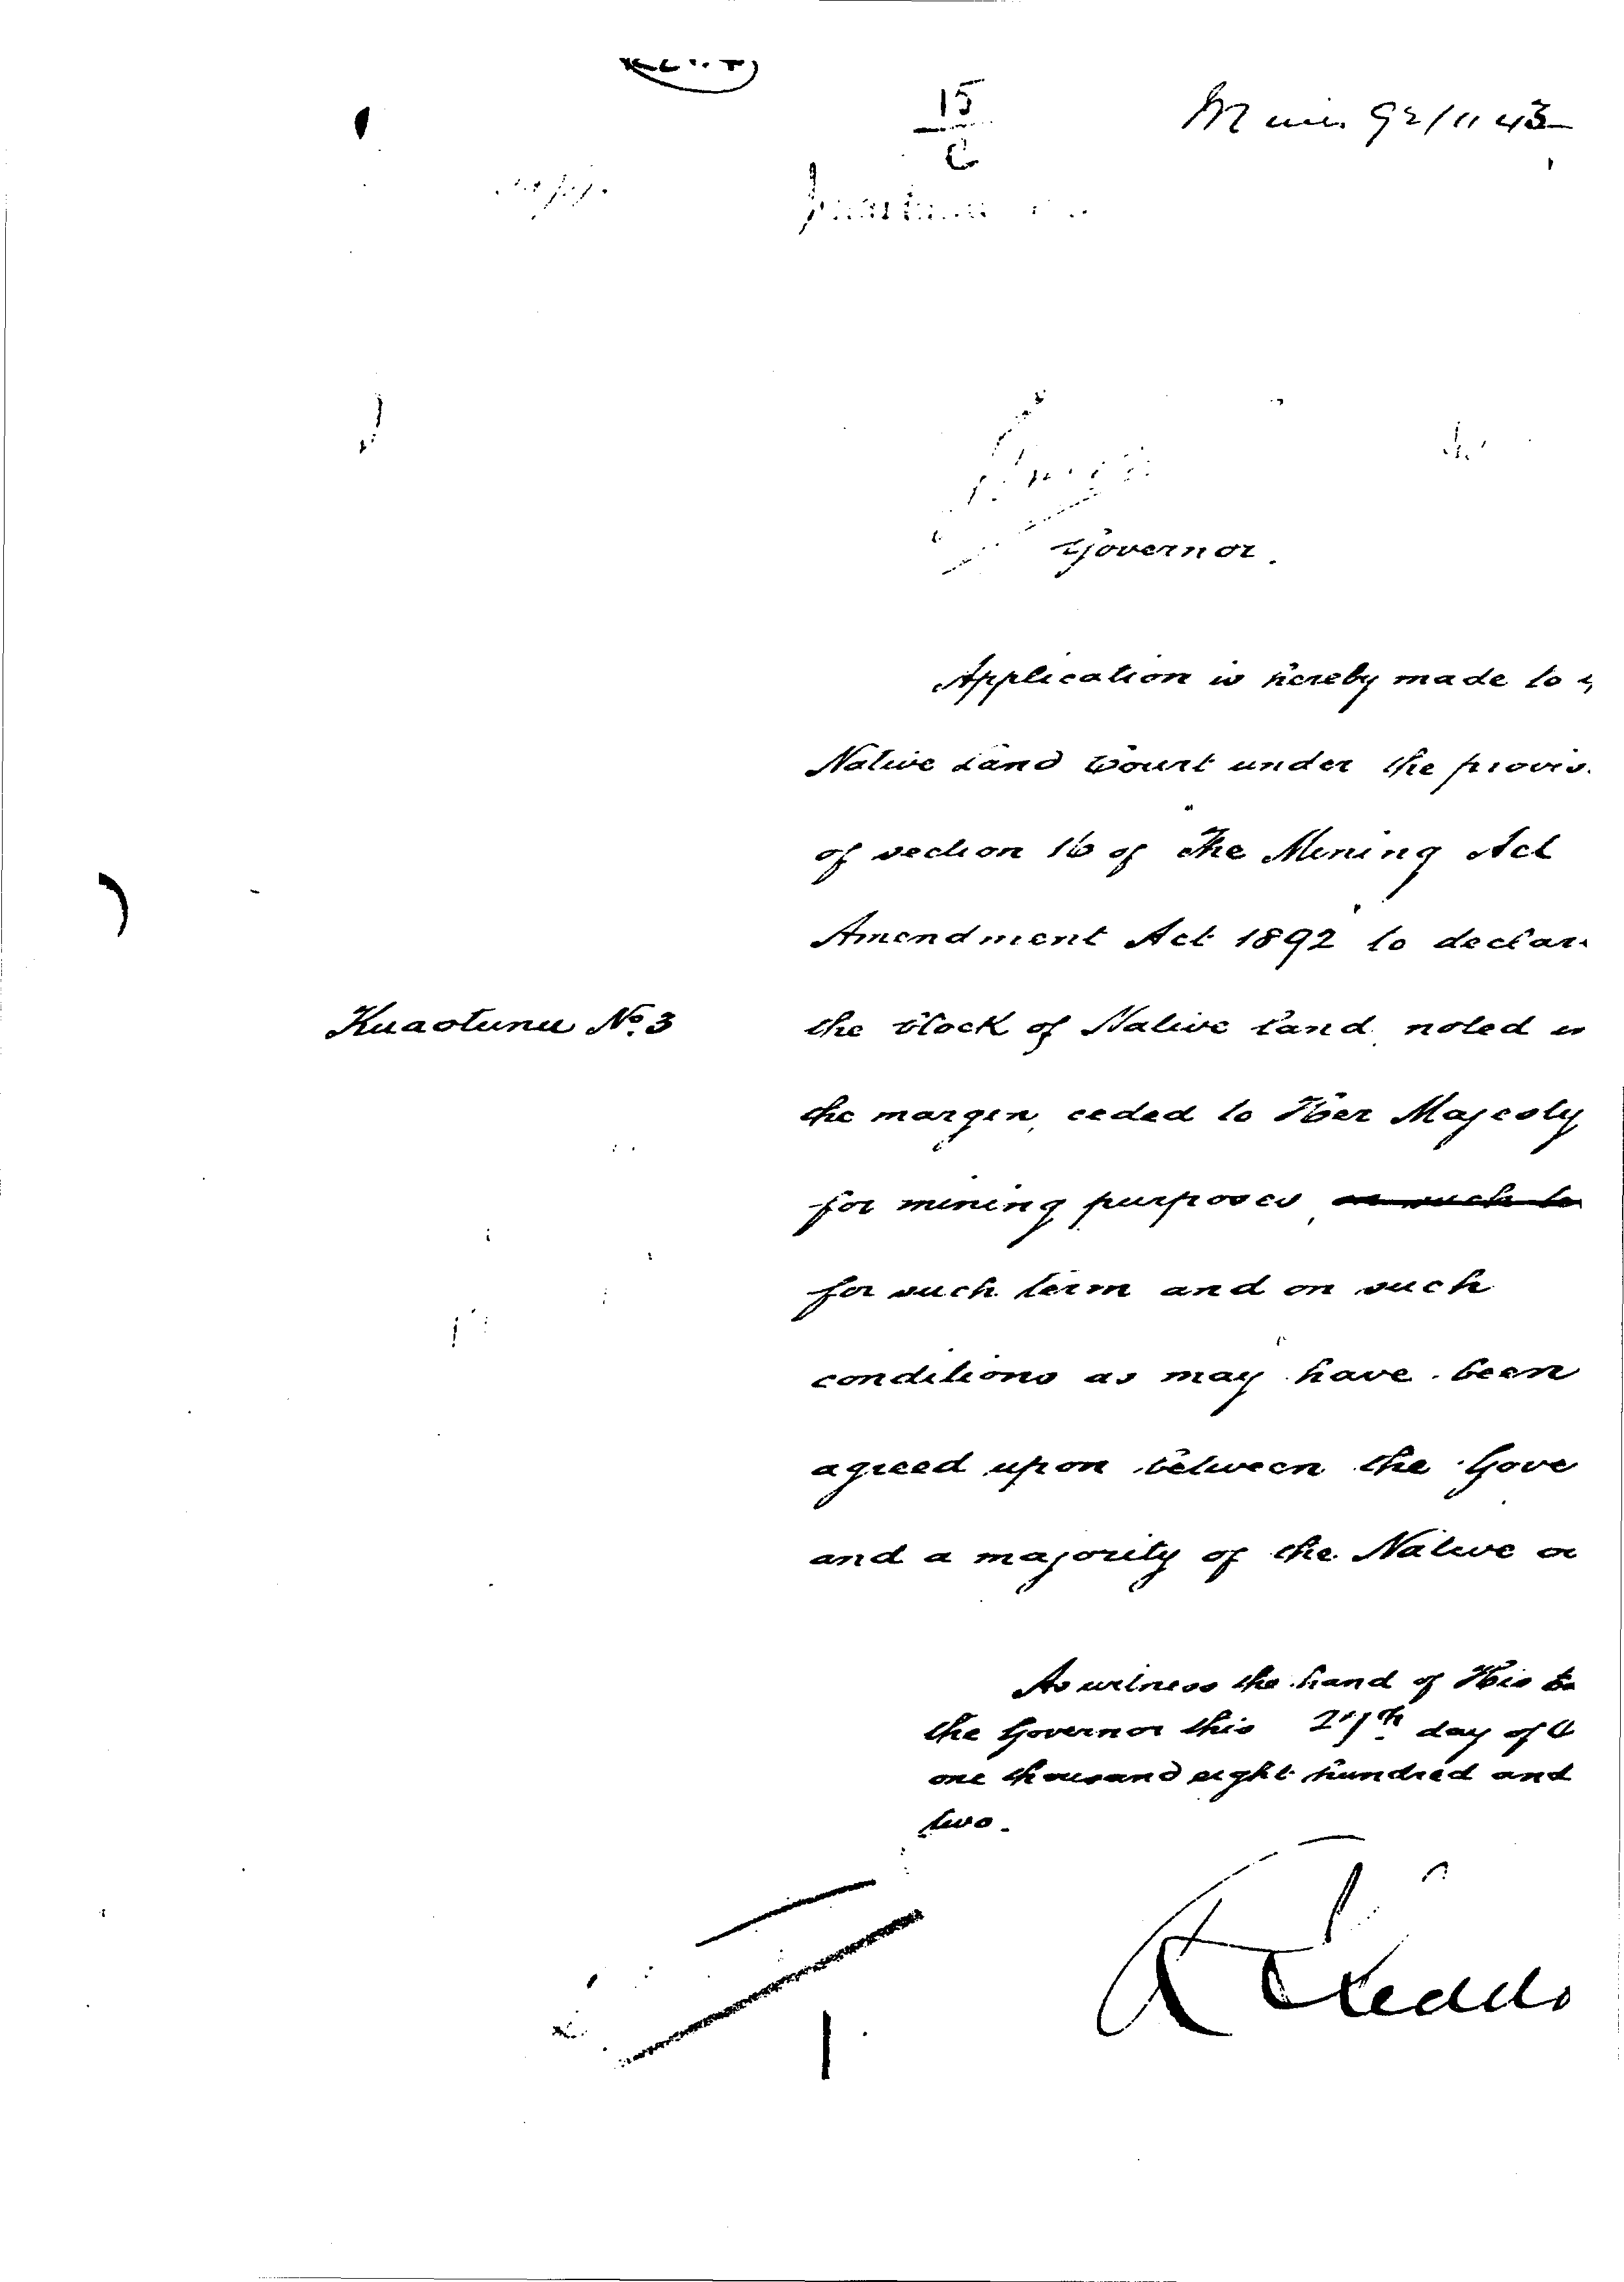 15
C
Mines 92/1143
Governor.
Application is hereby made to
Native Land Court under the provis
of section 16 of "The Mining Act
Amendment Act 1892" to declar
Kuaotunu No. 3
the block of Native land noted in
the margin, ceded to Her Majesty
for mining purposes, on such te
for such term and on such
conditions as may have been
agreed upon between the Gove
and a majority of the Native o
As witness the hand of His
the Governor this 27th day of O
one thousand eight hundred and
two.